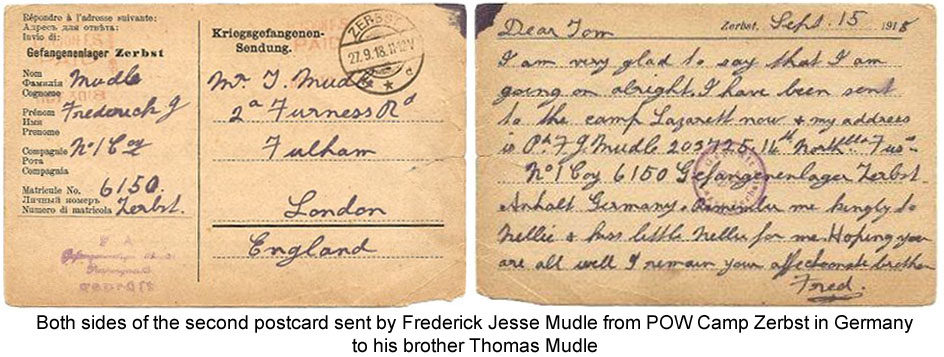 Répondre à l'adresse suivante:
Адресъ для отвѣта:
Invio di:
Gefangenenlager Zerbst
Nom
Фамилія
Cognome
Mudle
Prénom
Имя
Prenome
Frederick J
Compagnie
Рота
Compagnia
No 1 Coy
Matricule No.
Личный номеръ
Numero di matricola
6150.
Zerbst.
Kriegsgefangenen-
Sendung.
PAID
ZERBST
27.9.18.11-12V
Mr T. Mudle
2a Furness Rd
Fulham
London
England
Zerbst, Sept. 15 1918
Dear Tom
I am very glad to say that I am
going on alright. I have been sent
to the camp Lazarett now & my address
is Pte F J Mudle 203725. 16th North Fus
No 1 Coy 6150 Gefangenenlager Zerbst.
Anhalt Germany. Remember me kingly to
Nellie & kiss little Nellie for me. Hoping you
are all well I remain your affectionate brother
Fred.
Both sides of the second postcard sent by Frederick Jesse Mudle from POW Camp Zerbst in Germany
to his brother Thomas Mudle